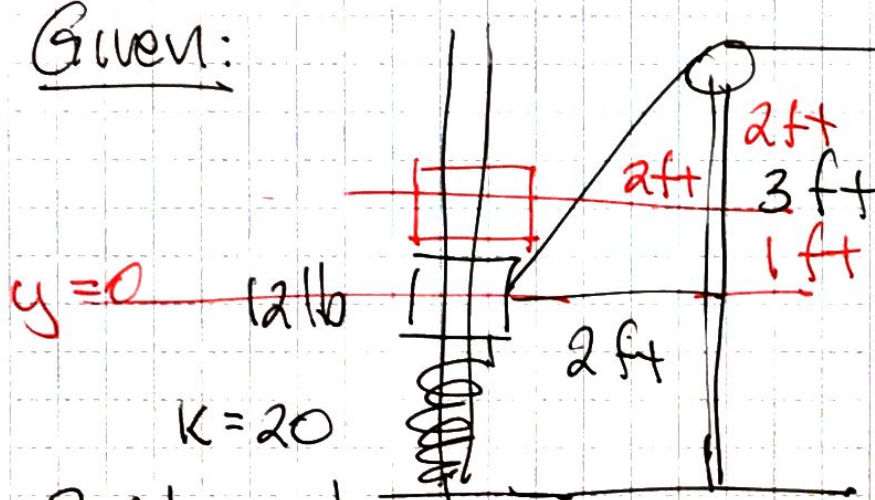 Given:
2ft
2ft
3 ft
1 ft
y=0
12 lb
2 ft
K = 20